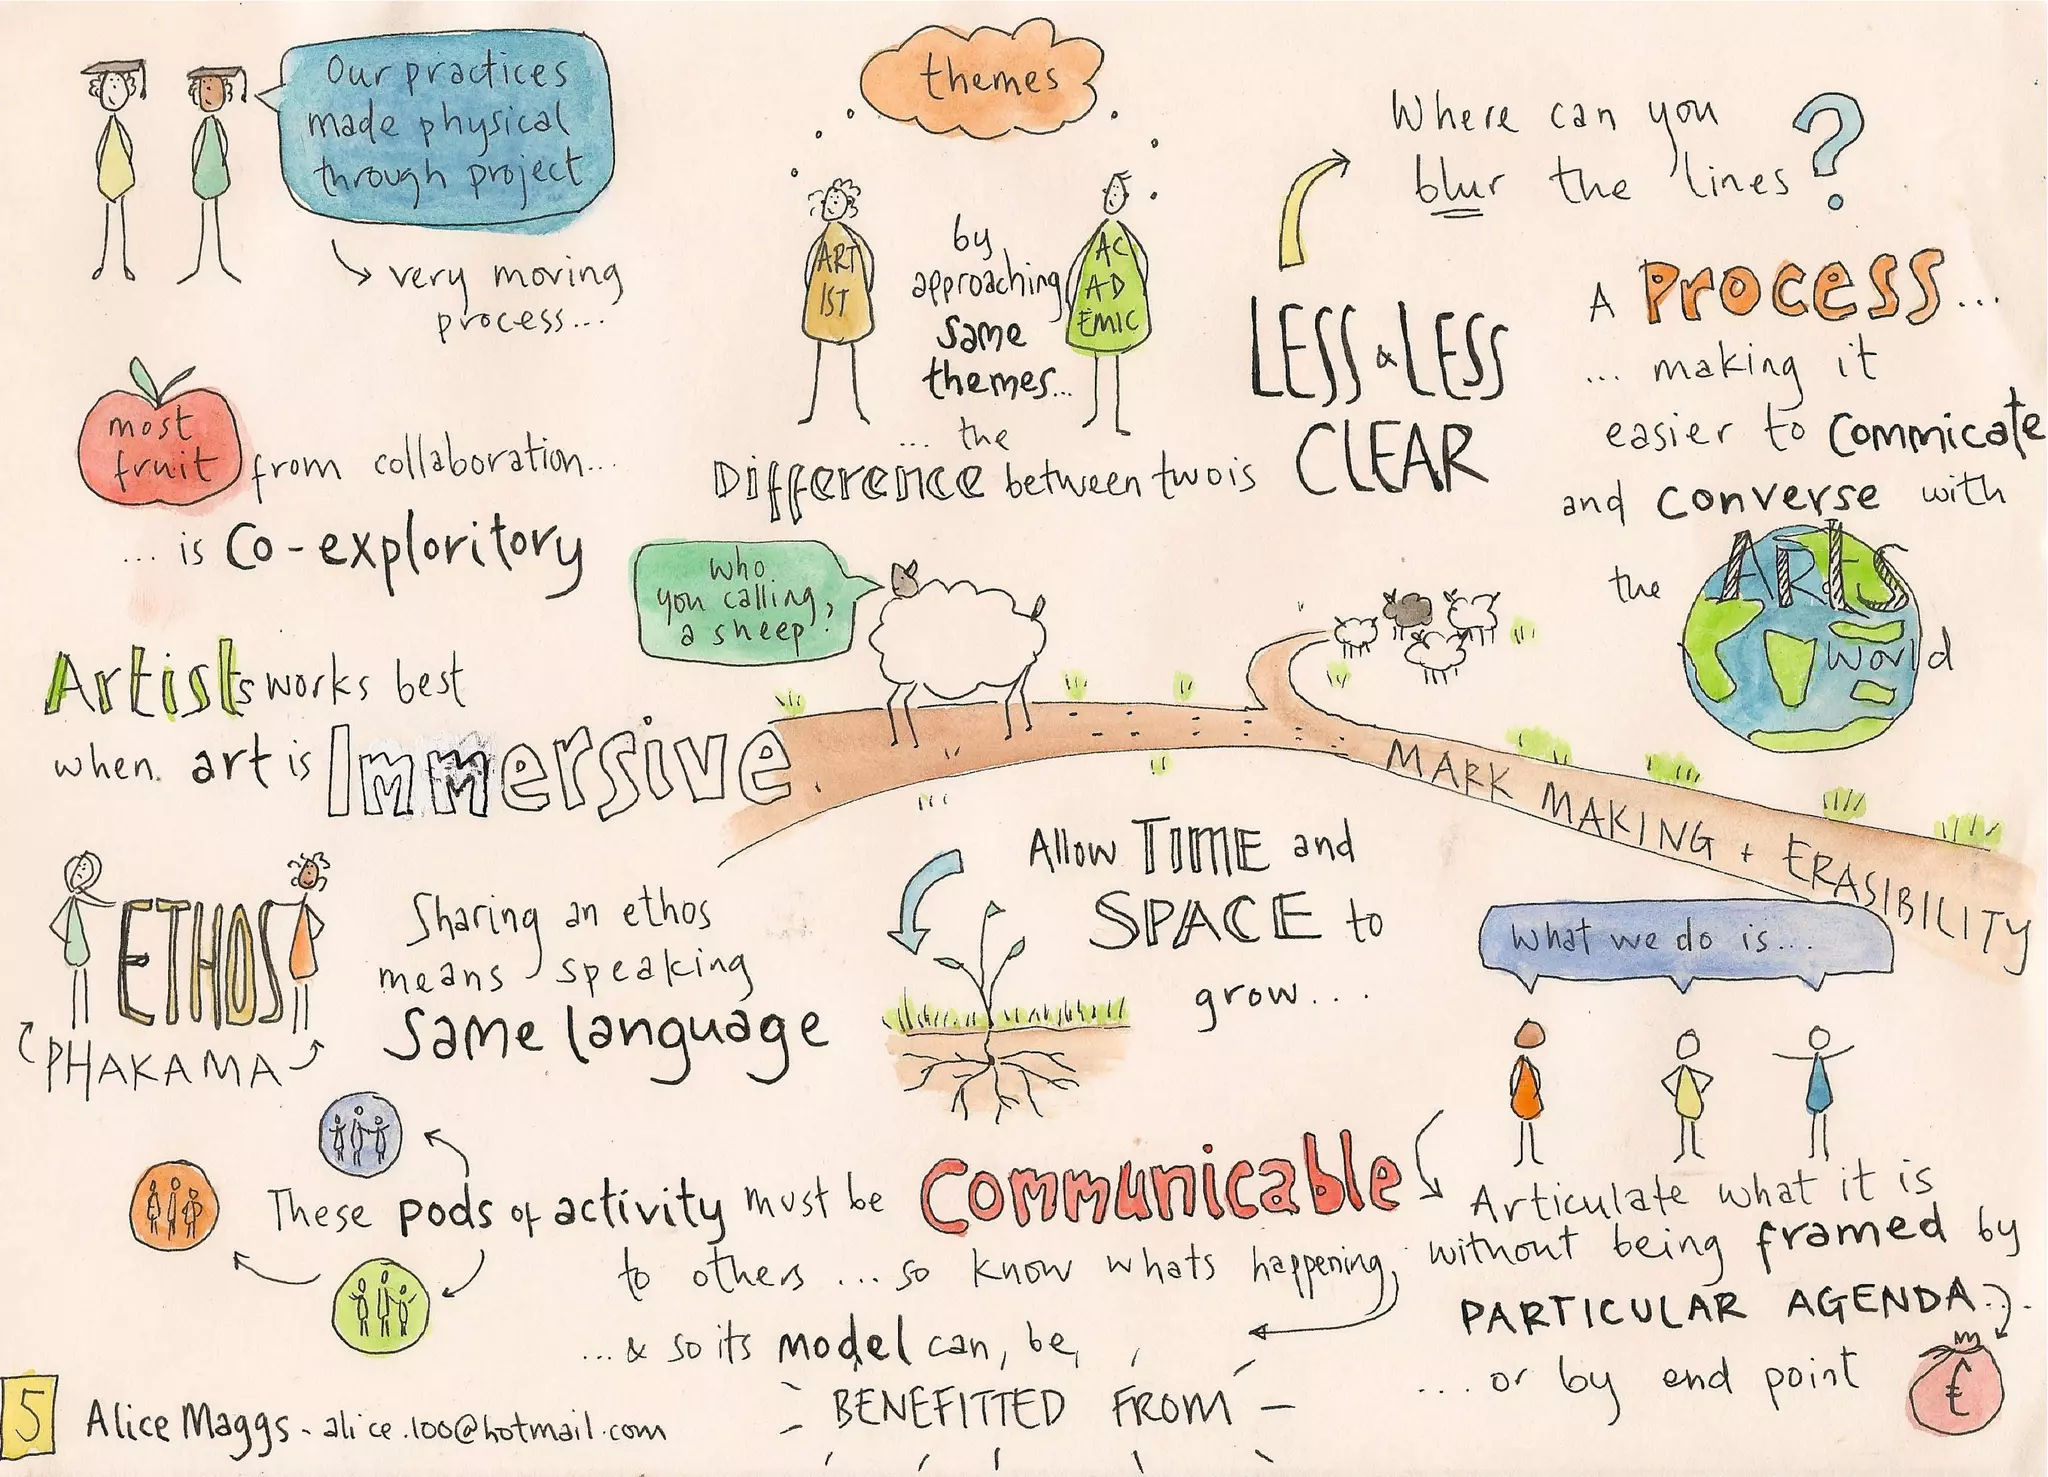 Our practices
made physical
through project
very moving
process...
themes
ART
IST
by
approaching
same
themes...
AC
AD
EMIC
... the
Difference between two is
LESS & LESS
CLEAR
Where can you
blur the lines ?
A Process...
... making it
easier to commicate
and converse with
the ARTS
world
most
fruit from collaboration...
... is co-exploritory
who
you calling,
a sheep?
Artists works best
when art is Immersive.
MARK MAKING + ERASIBILITY
ETHOS
PHAKAMA
Sharing an ethos
means speaking
same language
Allow TIME and
SPACE to
grow...
What we do is...
These pods of activity must be Communicable
to others ... so know whats happening,
... & so its model can, be,
BENEFITTED FROM
Articulate what it is
without being framed by
PARTICULAR AGENDA...
... or by end point
£
5
Alice Maggs - alice.100@hotmail.com